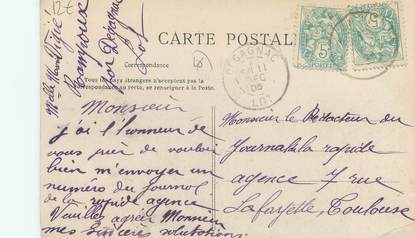 12€
Melle Marie
par Dégagnac
Lot
CARTE POSTALE
Correspondance
Tous les pays étrangers n'acceptent pas la
correspondance au recto, se renseigner à la Poste.
DEGAGNAC
11
DEC
05
LOT
5
POSTES
5
Monsieur
j'ai l'honneur de
vous prier de vouloir
bien m'envoyer un
numéro du Journal
de la rapide agence
Veuillez agréer Monsieur
mes sincères salutations
Monsieur le Rédacteur du
Journal la rapide
agence 7 rue
Lafayette, Toulouse